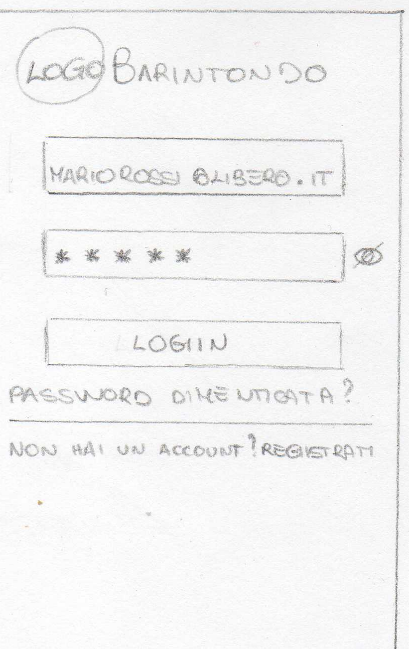 LOGO BARINTONDO
MARIOROSSI@LIBERO.IT
*****
LOGIIN
PASSWORD DIMENTICATA?
NON HAI UN ACCOUNT? REGISTRATI